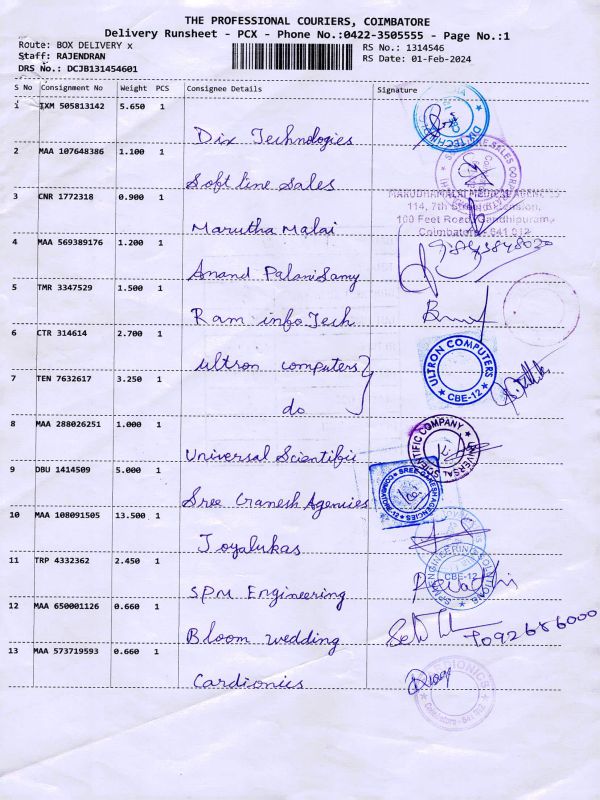 THE PROFESSIONAL COURIERS, COIMBATORE
Delivery Runsheet - PCX - Phone No.:0422-3505555 - Page No.:1
Route: BOX DELIVERY x
RS No.: 1314546
Staff: RAJENDRAN
RS Date: 01-Feb-2024
DRS No.: DCJB131454601
S No Consignment No Weight PCS Consignee Details Signature
1 IXM 505813142 5.650 1
Dix Technologies
2 MAA 107648386 1.100 1
Soft line Sales
3 CNR 1772318 0.900 1
MARUDHAMALAI MEDICAL AGENCIES
114, 7th Street Extension,
100 Feet Road, Gandhipuram,
Coimbatore - 641 012
Marutha Malai
4 MAA 569389176 1.200 1
Anand Palanisamy
5 TMR 3347529 1.500 1
Ram infoTech
6 CTR 314614 2.700 1
ultron computers
ULTRON COMPUTERS
CBE-12
7 TEN 7632617 3.250 1
do
8 MAA 288026251 1.000 1
Universal Scientific
UNIVERSAL SCIENTIFIC COMPANY
9 DBU 1414509 5.000 1
Sree Ganesh Agencies
SREE GANESH AGENCIES
COIMBATORE-12
10 MAA 108091505 13.500 1
Joyalukas
11 TRP 4332362 2.450 1
SPM Engineering
SPM ENGINEERING SOLUTIONS
CBE-12
12 MAA 650001126 0.660 1
Bloom wedding
13 MAA 573719593 0.660 1
Cardionics
CARDIONICS
Coimbatore - 641 012